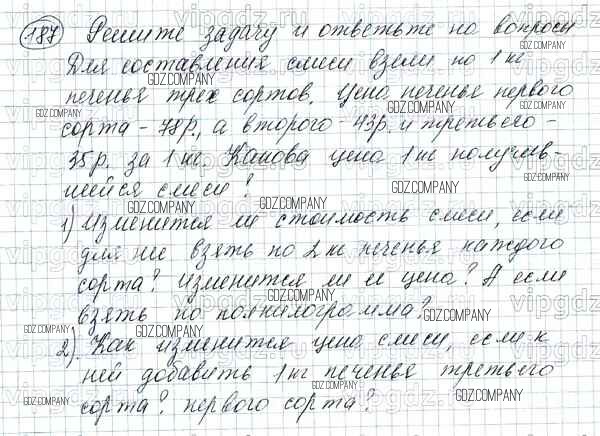 187 Решите задачу и ответьте на вопросы
Для составления смеси взяли по 1 кг
печенья трех сортов. Цена печенья первого
сорта – 78р., а второго – 43р. и третьего –
35р. за 1 кг. Какова цена 1 кг получив-
шейся смеси?
1) Изменится ли стоимость смеси, если
для нее взять по 2 кг печенья каждого
сорта? Изменится ли ее цена? А если
взять по полкилограмма?
2) Как изменится цена смеси, если к
ней добавить 1 кг печенья третьего
сорта? первого сорта?